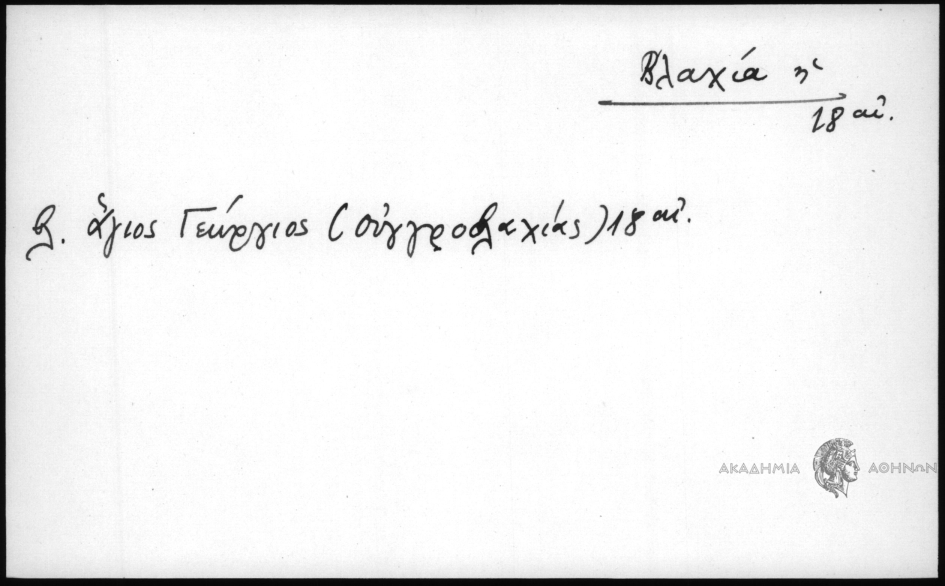 Βλαχία ἡ
18 αἰ.
βλ. ἅγιος Γεώργιος (Οὐγγροβλαχίας) 18 αἰ.
ΑΚΑΔΗΜΙΑ ΑΘΗΝΩΝ